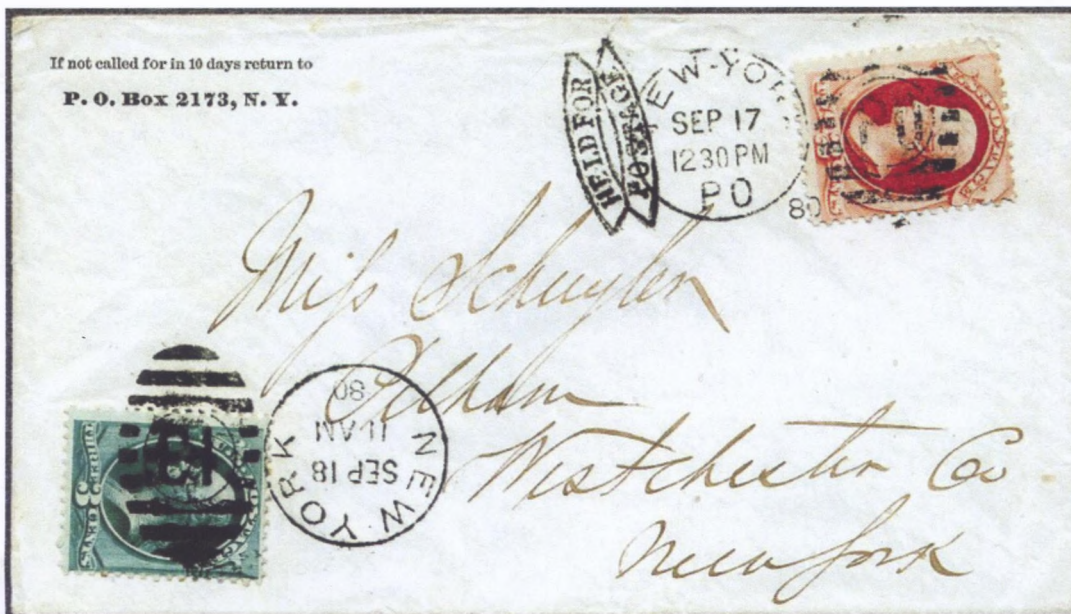 If not called for in 10 days return to
P. O. Box 2173, N. Y.
HELD FOR
POSTAGE
NEW-YORK
SEP 17
12 30 PM
PO
80
Miss Schuyler
Pelham
Westchester Co
New York
NEW YORK
SEP 18
11 AM
80